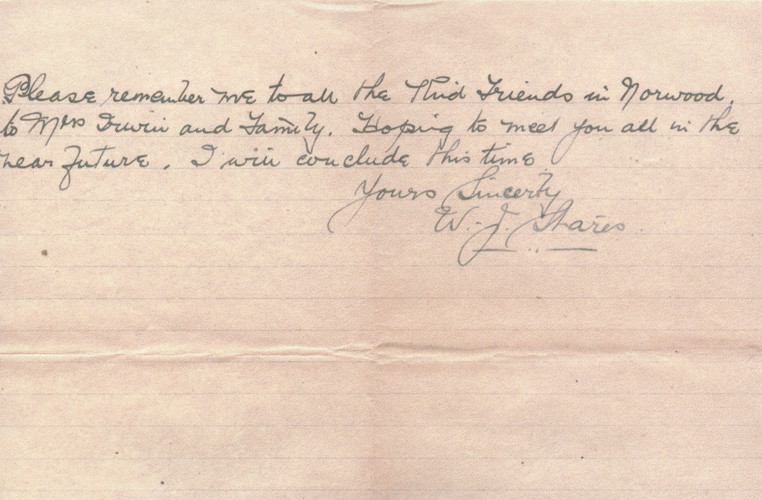 Please remember me to all the Kind Friends in Norwood,
to Mrs Irwin and Family. Hoping to meet you all in the
near future. I will conclude this time
Yours Sincerly
W. J. Shares